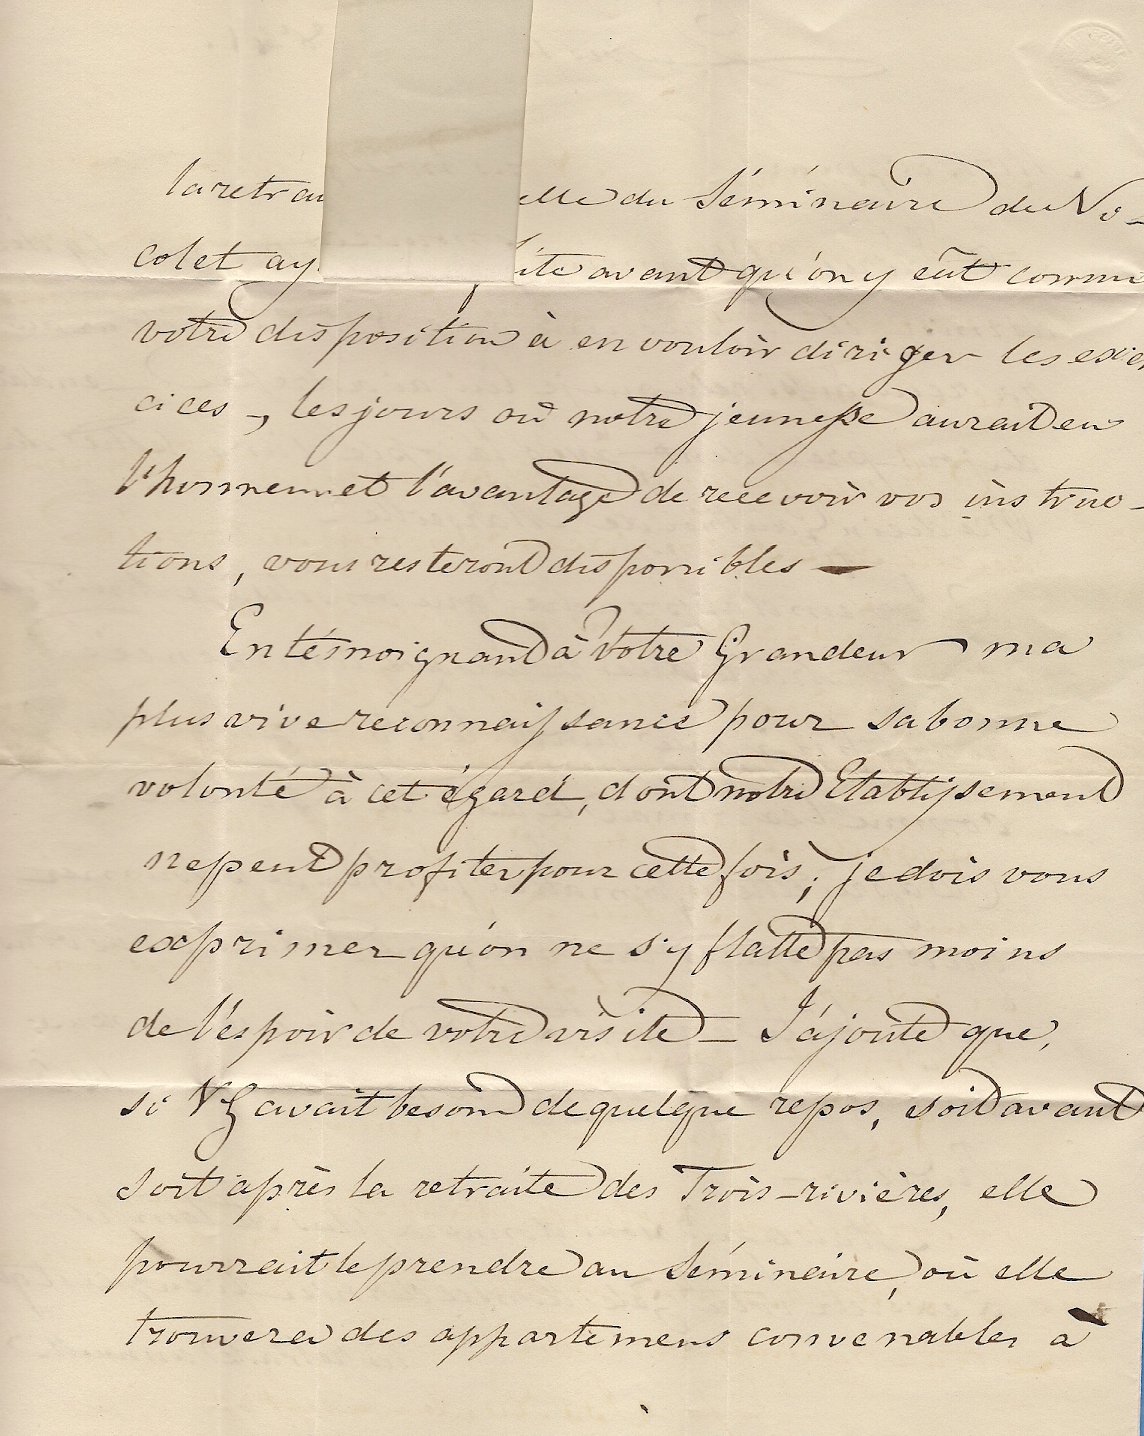 la retrai elle du Séminaire de Ni-
colet ay ite avant qu'on y eût connu
votre disposition à en vouloir diriger les exer
cices -, les jours où notre jeunesse aurait eu
l'honneur et l'avantage de recevoir vos instruc-
tions, vous resteront disponibles —
En témoignant à Votre Grandeur ma
plus vive reconnaissance pour sa bonne
volonté à cet égard, dont notre Etablissement
ne peut profiter pour cette fois; je dois vous
exprimer qu'on ne s'y flatte pas moins
de l'espoir de votre visite — J'ajoute que,
si V G avait besoin de quelque repos, soit avant
soit après la retraite des Trois-rivières, elle
pourrait le prendre au Séminaire, où elle
trouvera des appartemens convenables à